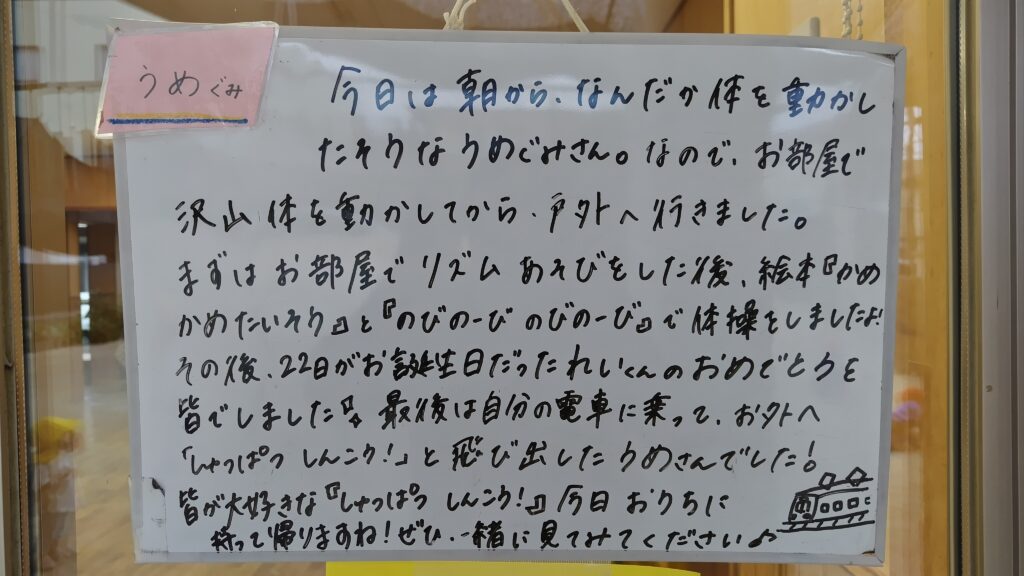 うめぐみ
今日は朝から、なんだか体を動かし
たそうなうめぐみさん。なので、お部屋で
沢山体を動かしてから、戸外へ行きました。
まずはお部屋でリズムあそびをした後、絵本『かめ
かめたいそう』と『のびのーび のびのーび』で体操をしましたよ!
その後、22日がお誕生日だったれいくんのおめでとうを
皆でしました!。最後は自分の電車に乗って、お外へ
「しゅっぱつ しんこう!」と飛び出したうめさんでした!
皆が大好きな『しゅっぱつ しんこう!』今日おうちに
持って帰りますね!ぜひ、一緒に見てみてください♪